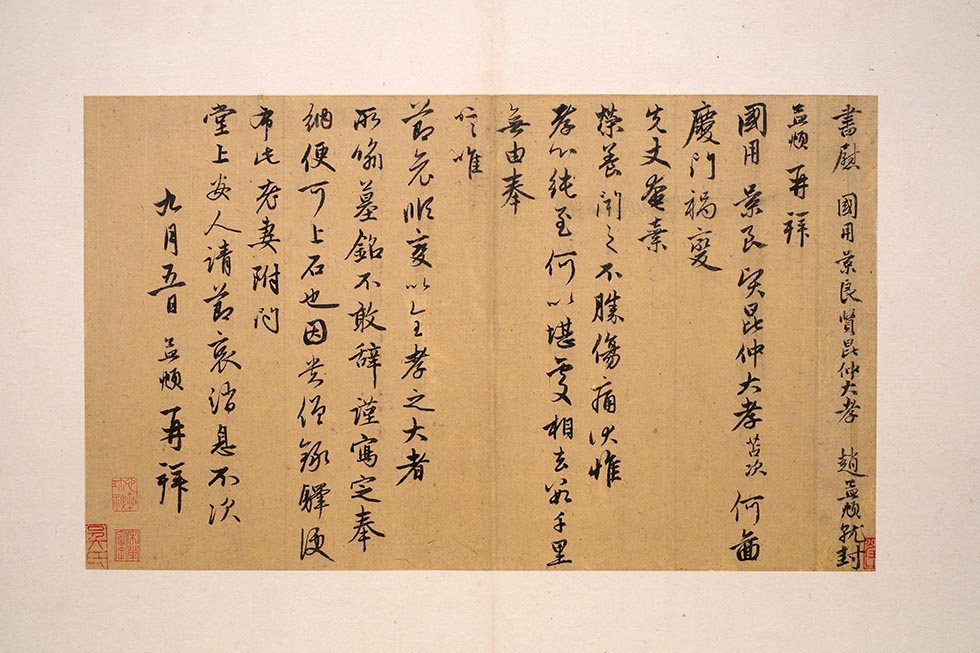 書慰 國用 景良賢昆仲大孝 趙孟頫就封
孟頫再拜
國用 景良賢昆仲大孝苫次何啚
慶門禍變
先丈奄棄
榮養聞之不勝傷痛伏惟
孝心純至何以堪處相去數千里
無由奉
唁唯
節哀順變以全孝之大者
所喻墓銘不敢辭謹寫定奉
納便可上石也因 僧 驛便
布此老妻附問
堂上安人請節哀消息不次
九月五日 孟頫再拜